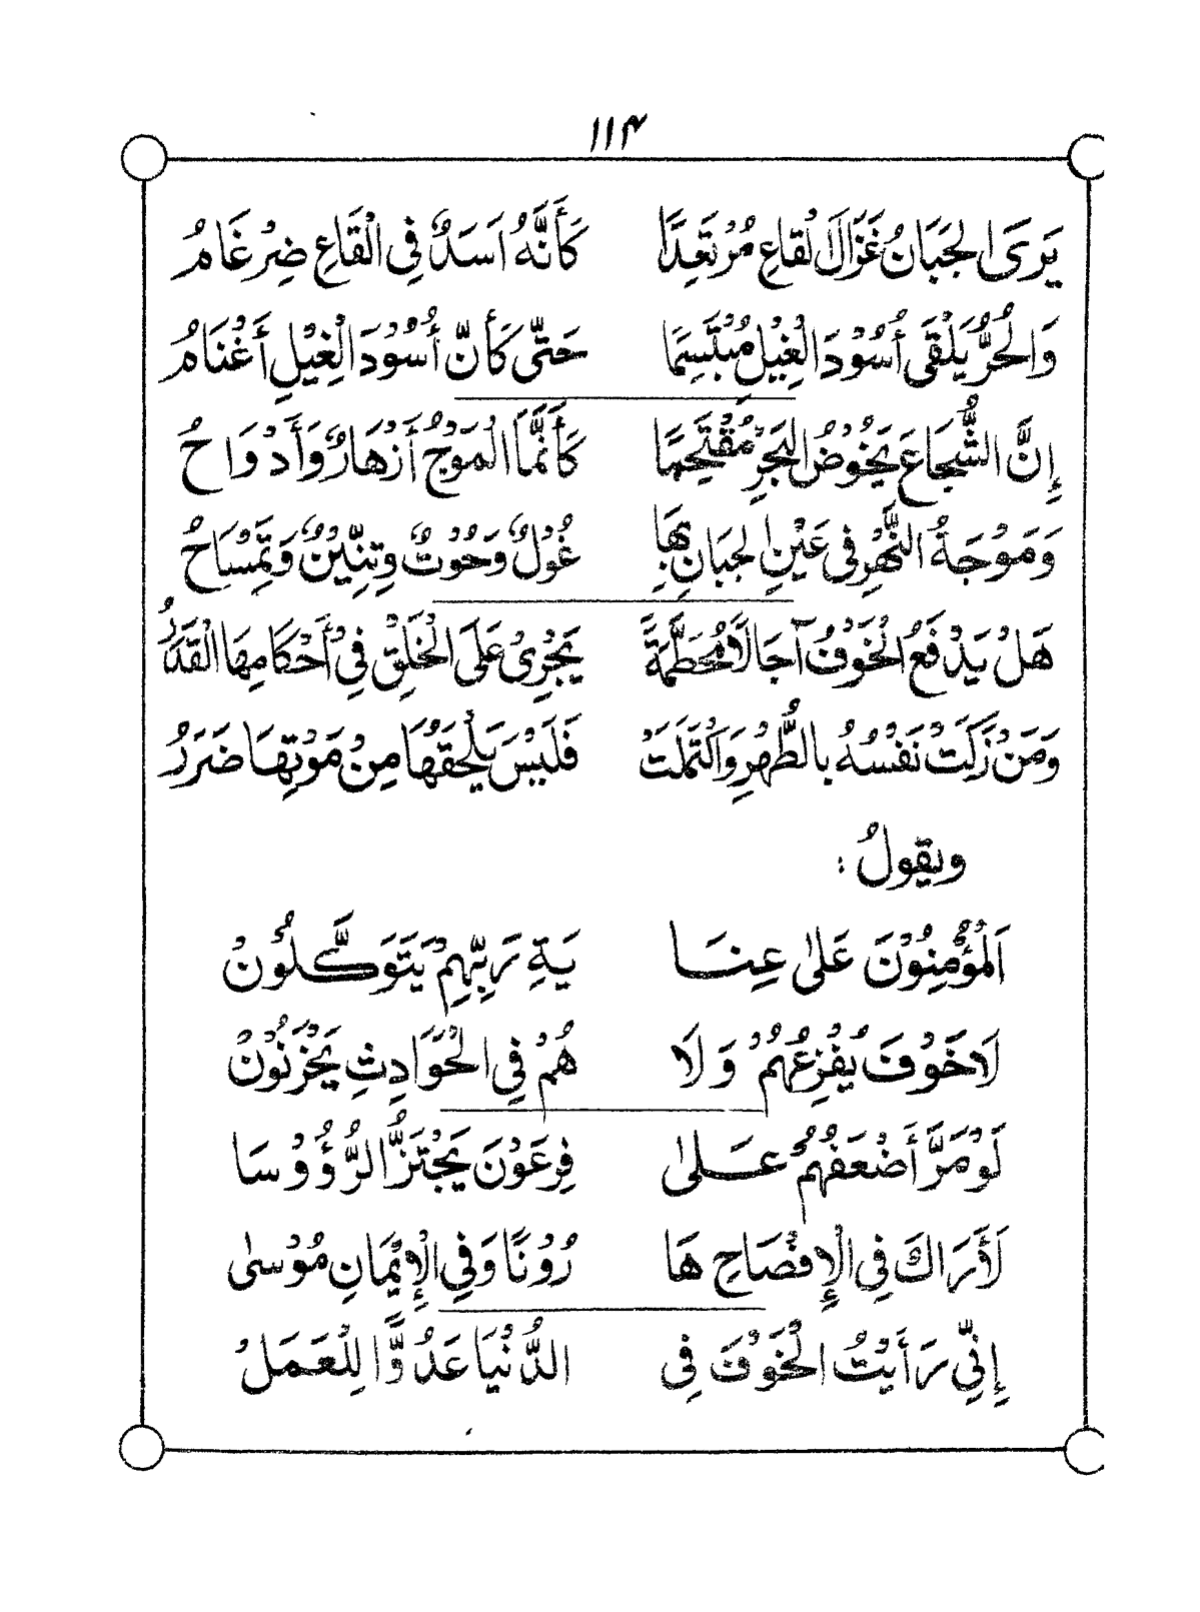 ١١٤
يَرَى الجَبَانُ غَزَالَ القَاعِ مُرْتَعِدًا كَأَنَّهُ اَسَدٌ فِي الْقَاعِ ضِرْغَامُ
وَالْحُرُّ يَلْقَى أُسُوْدَ الْغِيْلِ مُبْتَسِمًا حَتّٰى كَأَنَّ أُسُوْدَ الْغِيْلِ أَغْنَامُ
إِنَّ الشُّجَاعَ يَخُوْضُ الْبَحْرَ مُقْتَحِمًا كَأَنَّمَا الْمَوْجُ أَزْهَارٌ وَأَدْوَاحُ
وَمَوْجَةُ النَّهْرِ فِي عَيْنِ الجَبَانِ بِهَا غُوْلٌ وَحُوْتٌ وَتِنِّيْنٌ وَتِمْسَاحُ
هَلْ يَدْفَعُ الْخَوْفُ آجَالًا مُحَطَّمَةً يَجْرِيْ عَلَى الْخَلْقِ فِيْ أَحْكَامِهَا الْقَدَرُ
وَمَنْ زَكَتْ نَفْسُهُ بِالطُّهْرِ وَاكْتَمَلَتْ فَلَيْسَ يَلْحَقُهَا مِنْ مَوْتِهَا ضَرَرُ
ويقولُ :
اَلْمُؤْمِنُوْنَ عَلىٰ عِنَا يَةِ رَبِّهِمْ يَتَوَكَّلُوْنْ
لَا خَوْفَ يُفْزِعُهُمْ وَلَا هُمْ فِي الْحَوَادِثِ يَحْزَنُوْنْ
لَوْ مَرَّ أَضْعَفُهُمْ عَلىٰ فِرْعَوْنَ يَجْتَزُّ الرُّؤُوْسَا
لَأَرَاكَ فِي الْإِفْصَاحِ هَا رُوْنًا وَفِي الْإِيْمَانِ مُوْسىٰ
إِنِّيْ رَأَيْتُ الْخَوْفَ فِي الدُّنْيَا عَدُوًّا لِلْعَمَلْ